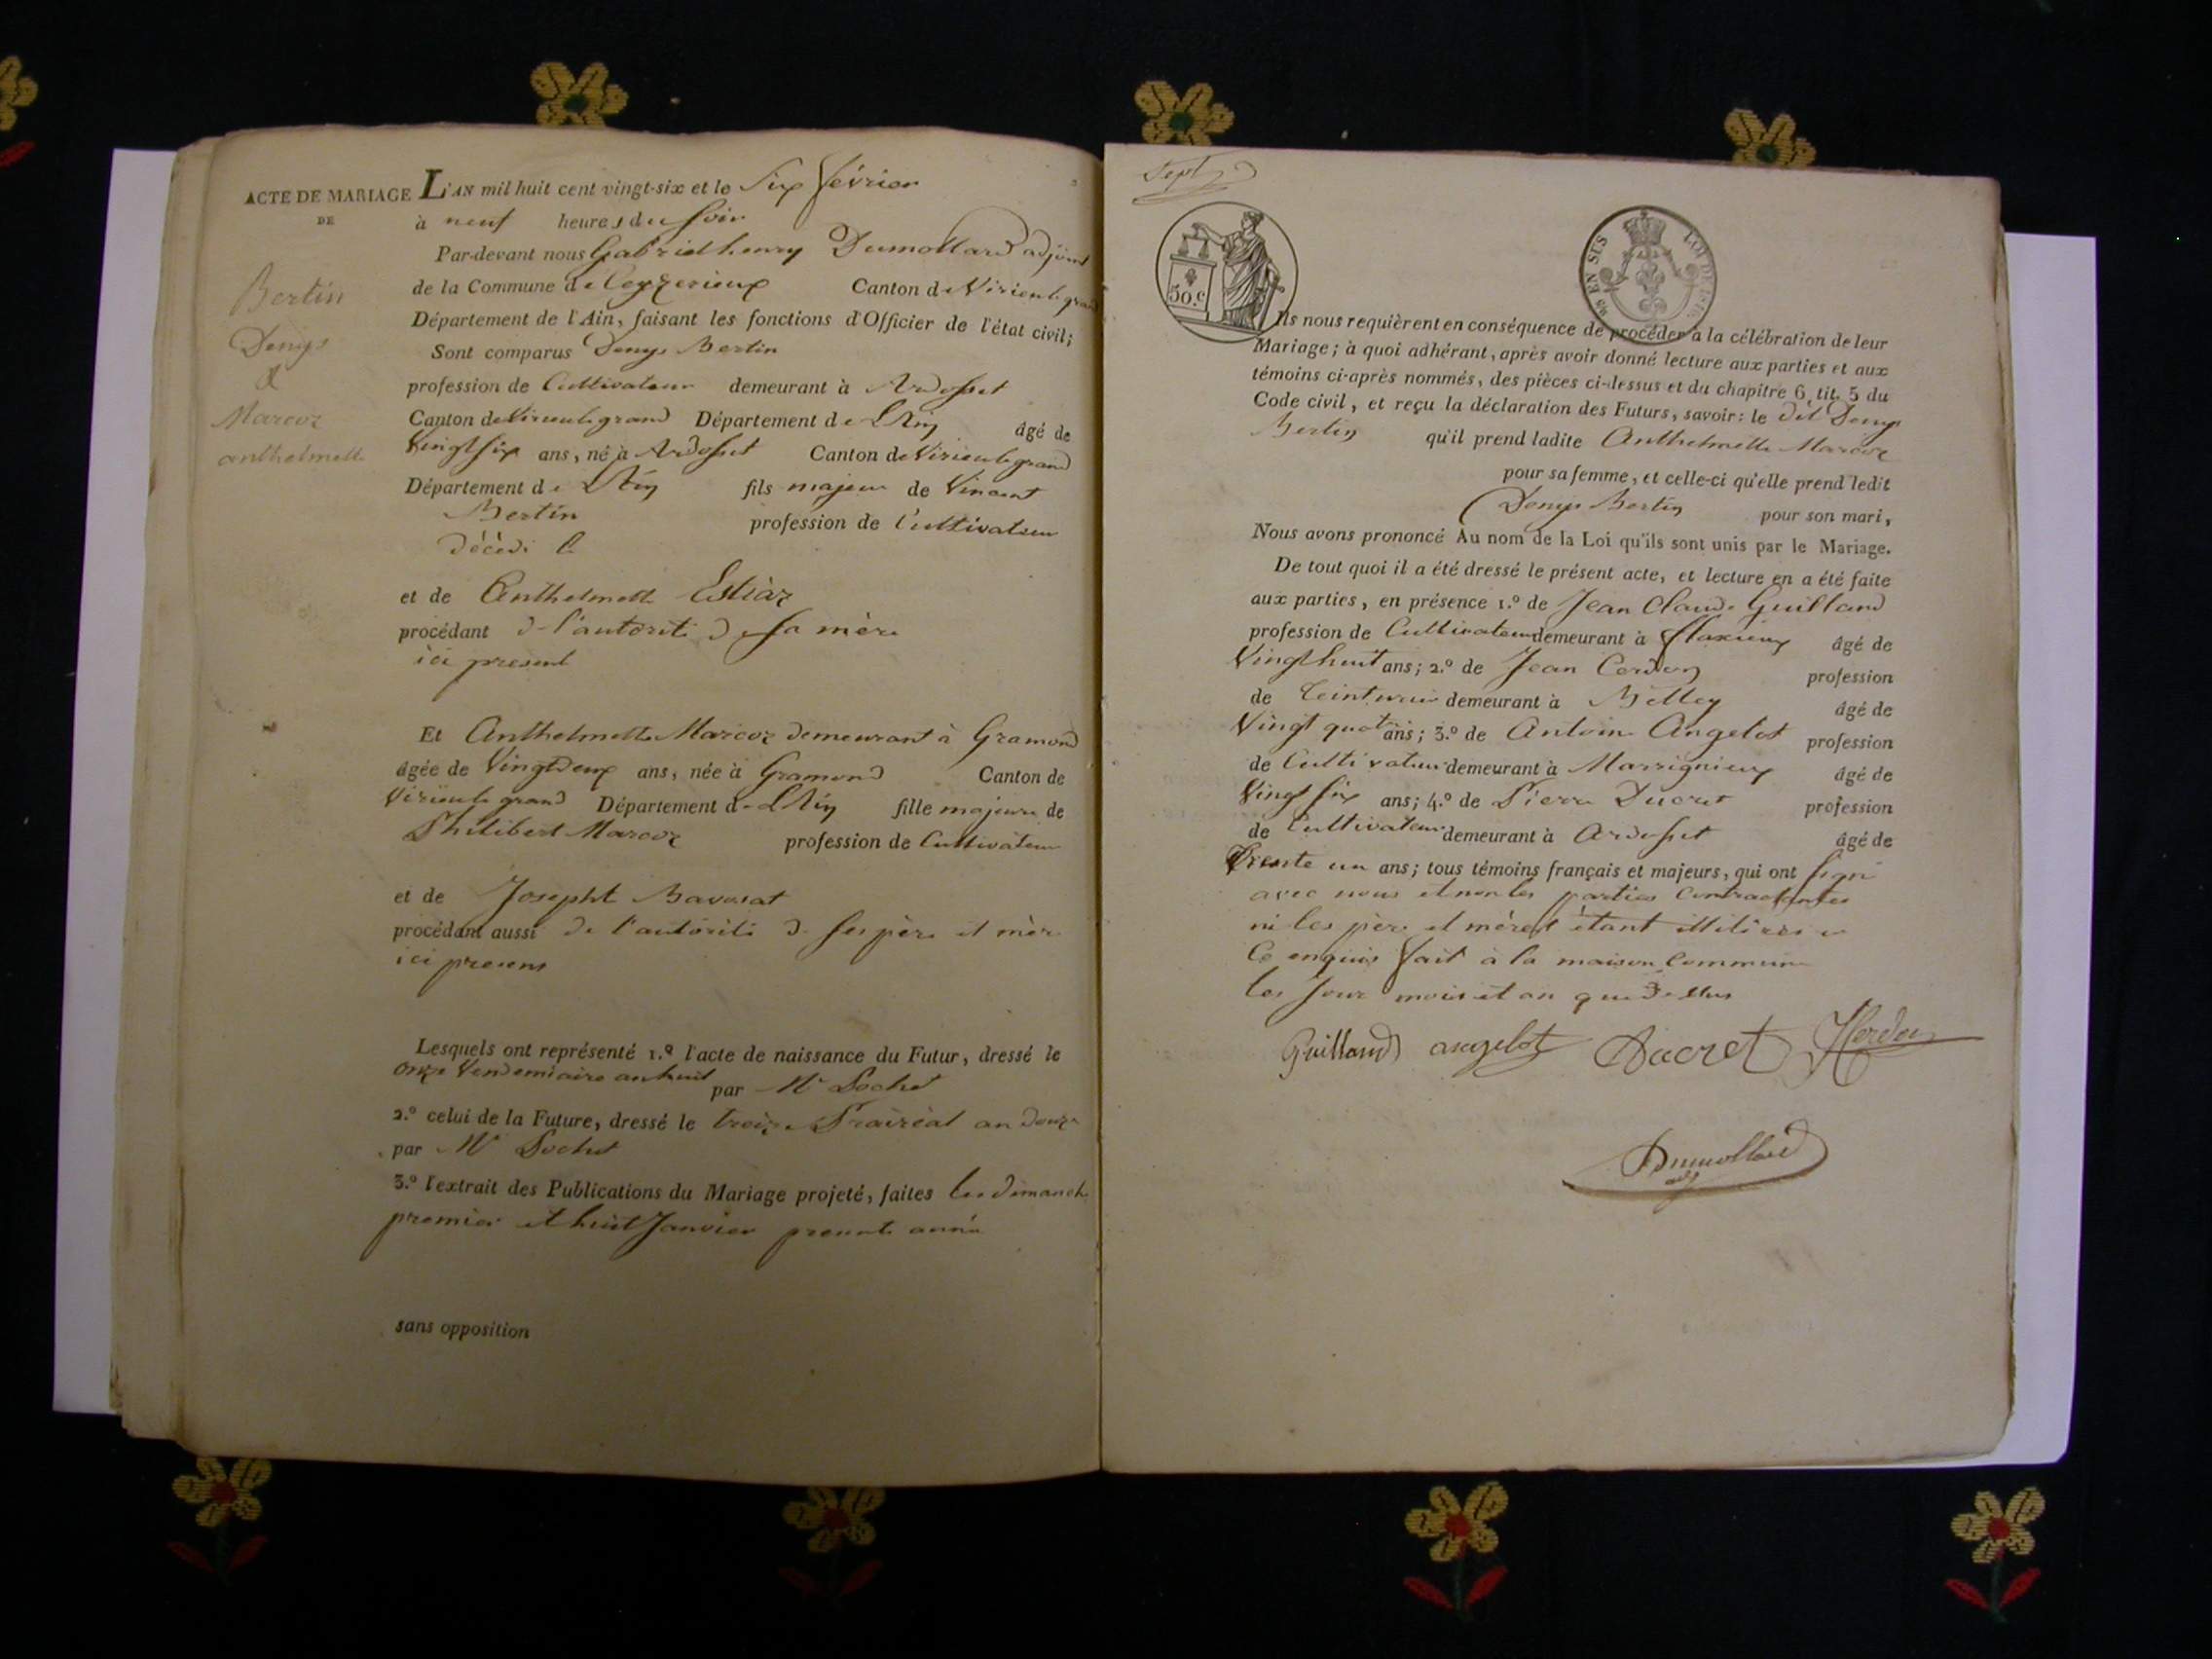 ACTE DE MARIAGE
DE
Bertin
Denys
&
Marcoz
anthelmette
L'AN mil huit cent vingt-six et le Six février
à neuf heures du soir
Par-devant nous Gabriel henry Dumollard adjoint
de la Commune de Ceyzerieux Canton de Virieu le grand
Département de l'Ain, faisant les fonctions d'Officier de l'état civil;
Sont comparus Denys Bertin
profession de Cultivateur demeurant à Ardosset
Canton de Virieu le grand Département de L'Ain âgé de
Vingt six ans, né à Ardosset Canton de Virieu le grand
Département de L'Ain fils majeur de Vincent
Bertin profession de Cultivateur
décédé le
et de Anthelmette Estiaz
procédant de l'autorité de sa mère
ici present
Et Anthelmette Marcoz demeurant à Gramond
âgée de Vingt deux ans, née à Gramond Canton de
Virieu le grand Département de L'Ain fille majeure de
Philibert Marcoz profession de Cultivateur
et de Josepht Bavosat
procédant aussi de l'autorité de ses père et mère
ici presens
Lesquels ont représenté 1.º l'acte de naissance du Futur, dressé le
onze Vendemiaire an huit par Mr Sochet
2.º celui de la Future, dressé le treize Prairéal an douze
par Mr Sochet
3.º l'extrait des Publications du Mariage projeté, faites les dimanche
premier et huit Janvier presente année
sans opposition
Sept
50.c
EN SUS
LOI DE 1816
Ils nous requièrent en conséquence de procéder à la célébration de leur
Mariage; à quoi adhérant, après avoir donné lecture aux parties et aux
témoins ci-après nommés, des pièces ci-dessus et du chapitre 6, tit. 5 du
Code civil, et reçu la déclaration des Futurs, savoir: le dit Denys
Bertin qu'il prend ladite Anthelmette Marcoz
pour sa femme, et celle-ci qu'elle prend ledit
Denys Bertin pour son mari,
Nous avons prononcé Au nom de la Loi qu'ils sont unis par le Mariage.
De tout quoi il a été dressé le présent acte, et lecture en a été faite
aux parties, en présence 1.º de Jean Claude Guilland
profession de Cultivateur demeurant à flaxieux âgé de
Vingt huit ans; 2.º de Jean Cerdon profession
de teinturier demeurant à Belley âgé de
Vingt quatre ans; 3.º de Antoine Angelot profession
de Cultivateur demeurant à Marrignieux âgé de
Vingt six ans; 4.º de Pierre Ducret profession
de Cultivateur demeurant à Ardosset âgé de
Trente un ans; tous témoins français et majeurs, qui ont signé
avec nous et non les parties Contractantes
ni les père et mères étant illitérés
Ce enquis fait à la maison Commune
les jour mois et an que dessus
Guilland angelot Ducret
Dumollard
adj